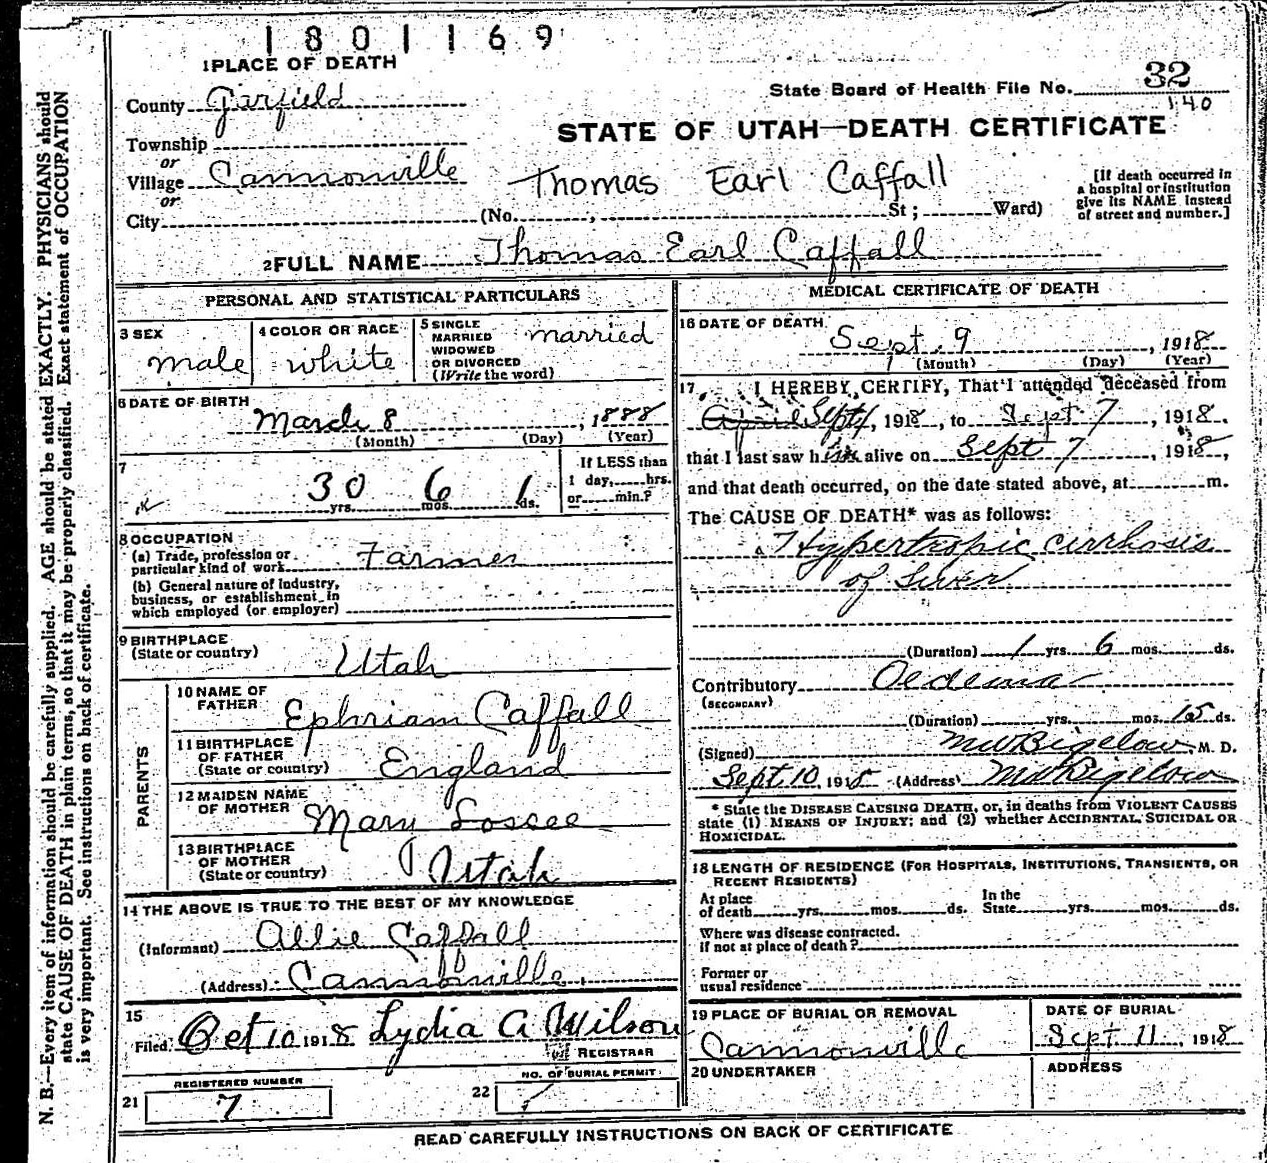 1801169
1 PLACE OF DEATH
County Garfield
State Board of Health File No. 32
140
STATE OF UTAH—DEATH CERTIFICATE
Township
or
Village Cannonville
or
City
Thomas Earl Caffall
(No. , St ; Ward)
[If death occurred in
a hospital or institution
give its NAME instead
of street and number.]
2 FULL NAME Thomas Earl Caffall
PERSONAL AND STATISTICAL PARTICULARS
3 SEX
male
4 COLOR OR RACE
white
5 SINGLE
MARRIED
WIDOWED
OR DIVORCED
(Write the word)
married
6 DATE OF BIRTH
March 8 , 1888
(Month) (Day) (Year)
7
30 yrs. 6 mos. 1 ds.
If LESS than
1 day, hrs.
or min.?
8 OCCUPATION
(a) Trade, profession or
particular kind of work Farmer
(b) General nature of Industry,
business, or establishment in
which employed (or employer)
9 BIRTHPLACE
(State or country) Utah
PARENTS
10 NAME OF
FATHER Ephriam Caffall
11 BIRTHPLACE
OF FATHER
(State or country) England
12 MAIDEN NAME
OF MOTHER Mary Loscee
13 BIRTHPLACE
OF MOTHER
(State or country) Utah
14 THE ABOVE IS TRUE TO THE BEST OF MY KNOWLEDGE
(Informant) Allie Caffall
(Address) Cannonville
15
Filed Oct 10 1918 Lydia A Wilson
REGISTRAR
REGISTERED NUMBER
21 7
NO. OF BURIAL PERMIT
22
MEDICAL CERTIFICATE OF DEATH
16 DATE OF DEATH
Sept. 9 , 1918
(Month) (Day) (Year)
17 I HEREBY CERTIFY, That I attended deceased from
April Sept , 1918 , to Sept 7 , 1918.
that I last saw him alive on Sept 7 , 1918,
and that death occurred, on the date stated above, at m.
The CAUSE OF DEATH* was as follows:
Hypertropic cirrhosis
of Liver
(Duration) 1 yrs. 6 mos. ds.
Contributory Oedema
(SECONDARY)
(Duration) yrs. mos. 15 ds.
(Signed) MW Bigelow M. D.
Sept 10 1918 (Address) MW Bigelow
* State the DISEASE CAUSING DEATH, or, in deaths from VIOLENT CAUSES
state (1) MEANS OF INJURY; and (2) whether ACCIDENTAL SUICIDAL OR
HOMICIDAL.
18 LENGTH OF RESIDENCE (FOR HOSPITALS, INSTITUTIONS, TRANSIENTS, OR
RECENT RESIDENTS)
At place
of death yrs. mos. ds.
In the
State yrs. mos. ds.
Where was disease contracted.
if not at place of death?
Former or
usual residence
19 PLACE OF BURIAL OR REMOVAL
Cannonville
DATE OF BURIAL
Sept 11 , 1918
20 UNDERTAKER
ADDRESS
READ CAREFULLY INSTRUCTIONS ON BACK OF CERTIFICATE
N. B.—Every item of information should be carefully supplied. AGE should be stated EXACTLY. PHYSICIANS should
state CAUSE OF DEATH in plain terms, so that it may be properly classified. Exact statement of OCCUPATION
is very important. See instructions on back of certificate.